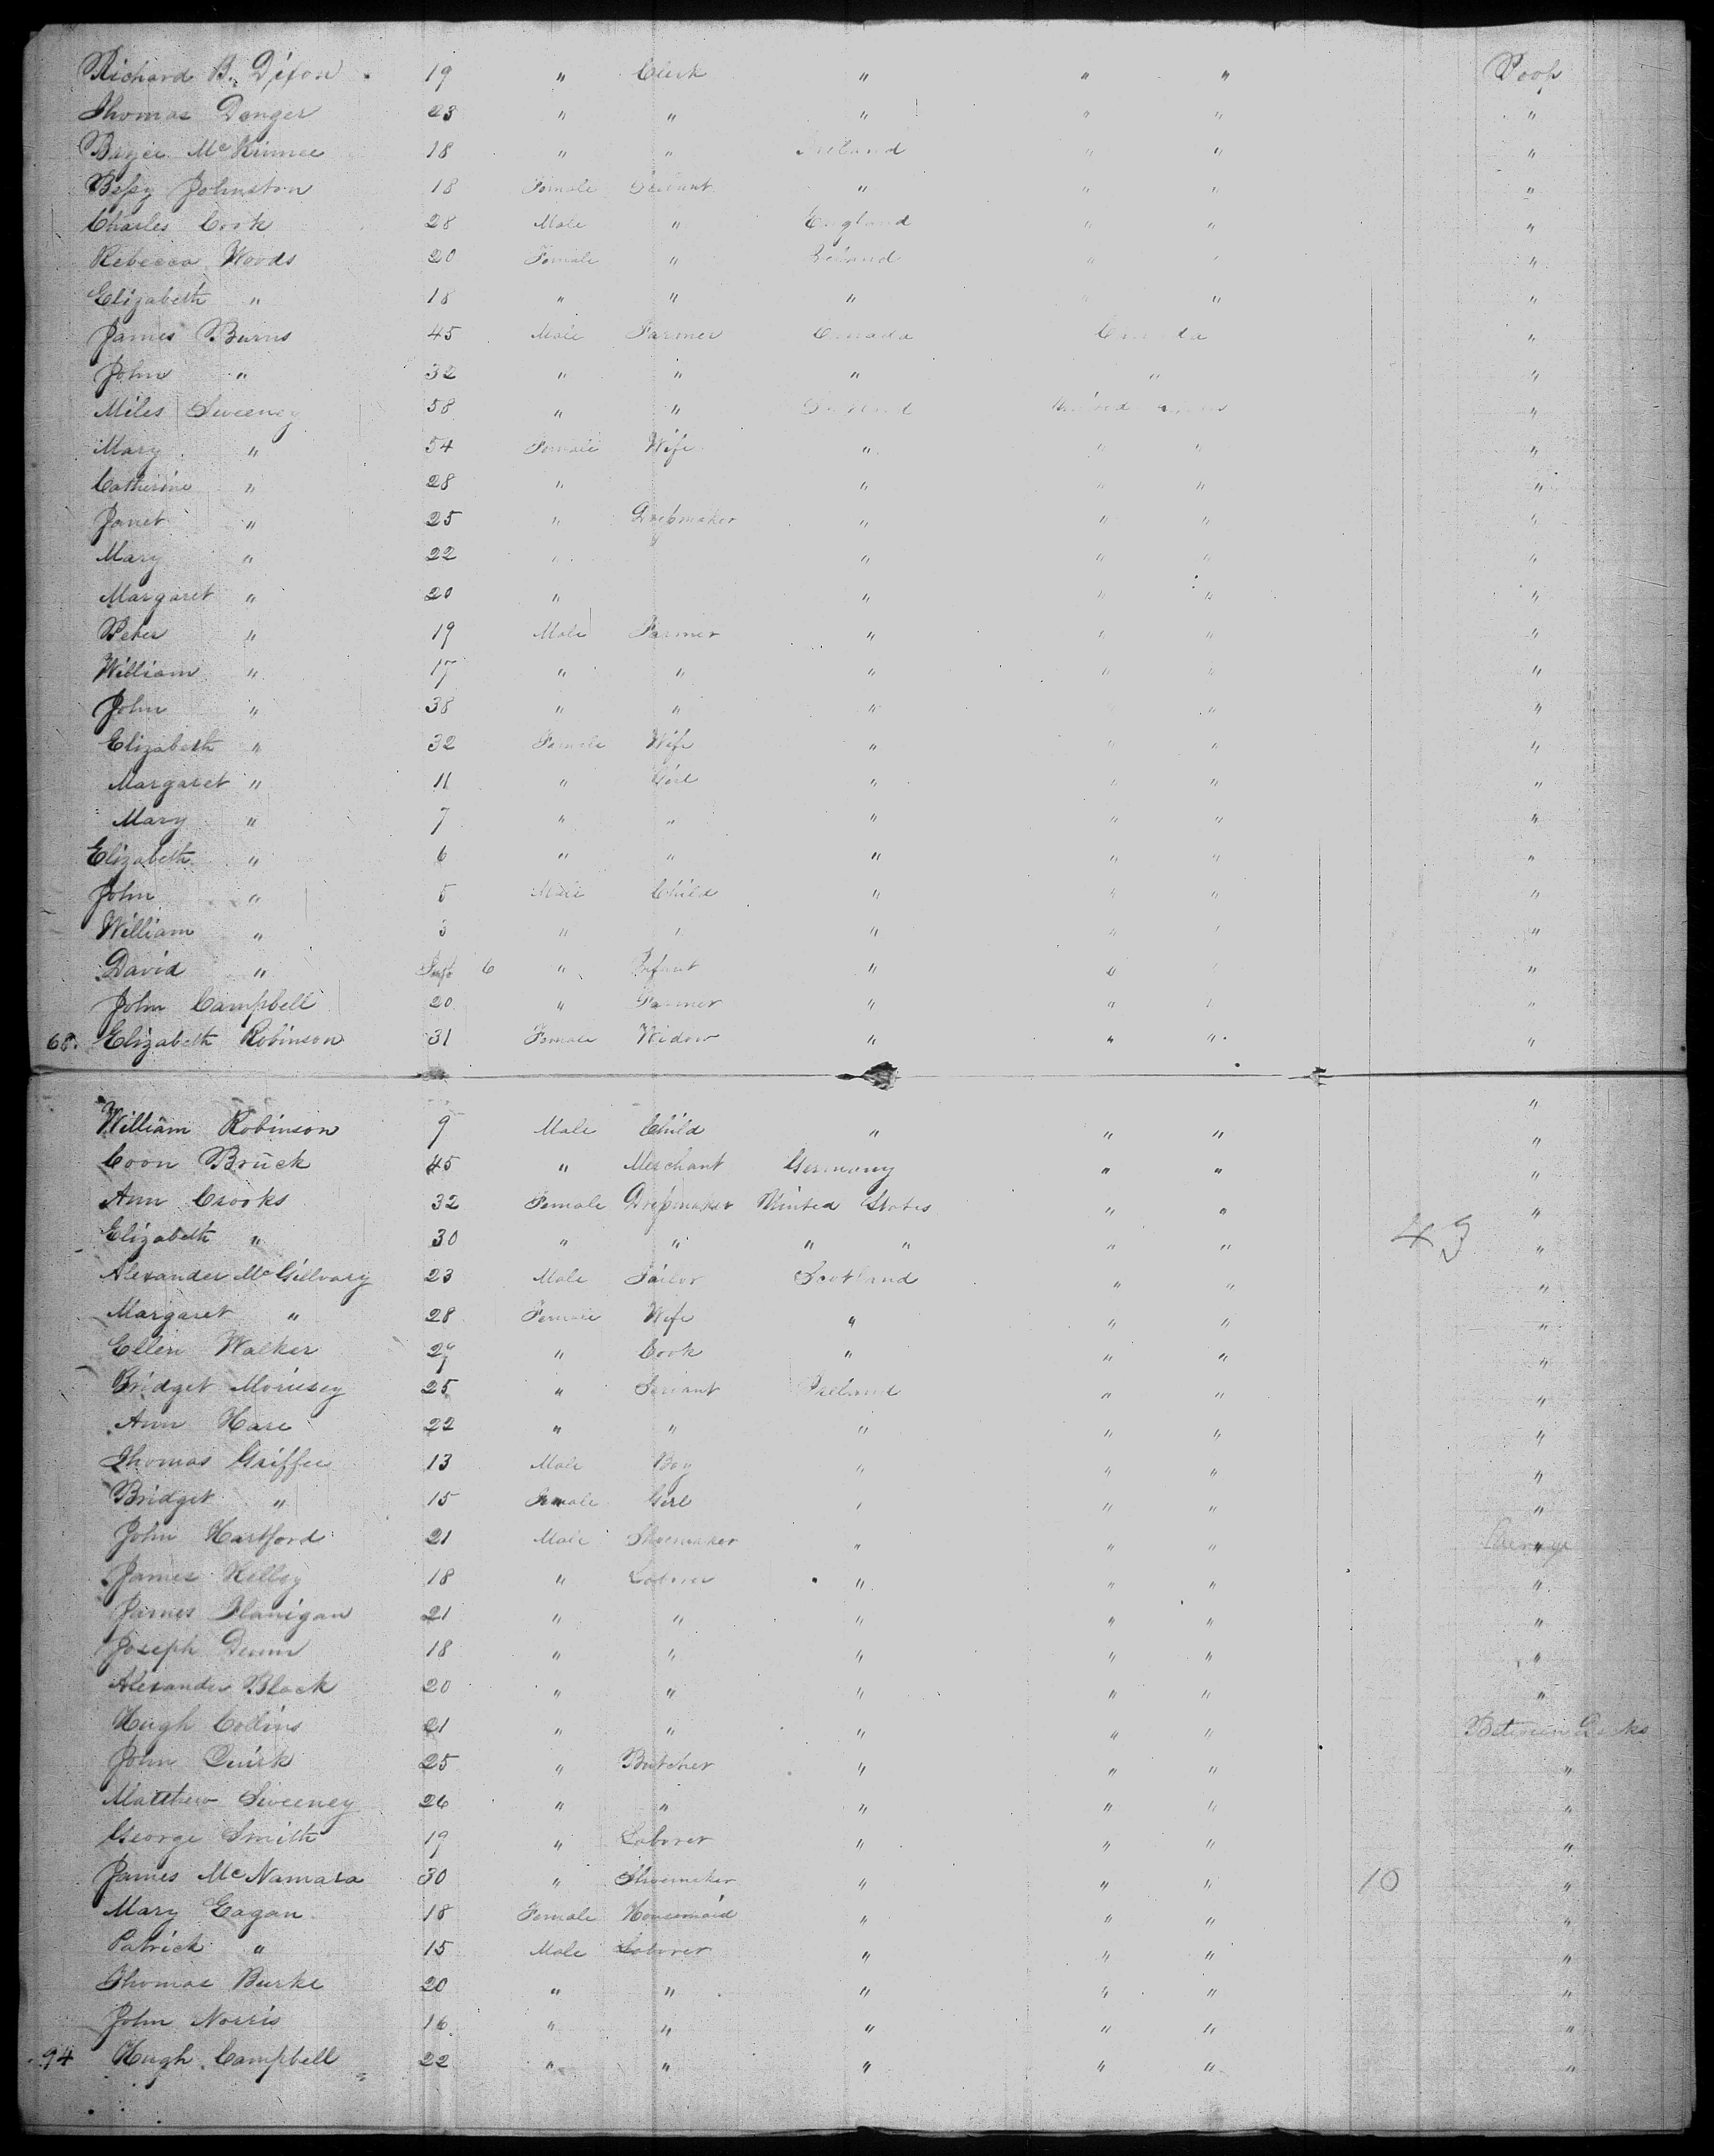 Richard B. Dixon 19 " Clerk " " " Poop
Thomas Danger 23 " " " " " "
McKinnee 18 " " Ireland " " "
Bessy Johnston 18 Female Servant " " " "
Charles Cook 28 Male " England " " "
Rebecca Woods 20 Female " Ireland " " "
Elizabeth " 18 " " " " " "
James Burns 45 Male Farmer Canada Canada "
John " 32 " " " " "
Miles Sweeney 58 " " United States "
Mary " 54 Female Wife " " " "
Catherine " 28 " " " " "
Janet " 25 " Dressmaker " " " "
Mary " 22 " " " " "
Margaret " 20 " " " " "
Peter " 19 Male Farmer " " " "
William " 17 " " " " " "
John " 38 " " " " " "
Elizabeth " 32 Female Wife " " " "
Margaret " 11 " Girl " " " "
Mary " 7 " " " " " "
Elizabeth " 6 " " " " " "
John " 5 Male Child " " " "
William " 3 " " " " " "
David " 6 " Infant " " " "
John Campbell 20 " Farmer " " " "
68. Elizabeth Robinson 31 Female Widow " " " "
"
William Robinson 9 Male Child " " " "
Coon Brück 45 " Merchant Germany " " "
Ann Crooks 32 Female Dressmaker United States " " "
Elizabeth " 30 " " " " " " 43 "
Alexander McGillvary 23 Male Tailor Scotland " " "
Margaret " 28 Female Wife " " " "
Ellen Walker 29 " Cook " " " "
Bridget Morissey 25 " Servant Ireland " " "
Ann Hare 22 " " " " " "
Thomas Griffee 13 Male Boy " " " "
Bridget " 15 Female Girl " " " "
John Hartford 21 Male Shoemaker " " " "
James Kelley 18 " Laborer " " " "
James Flanigan 21 " " " " " "
Joseph 18 " " " " " "
Alexander Black 20 " " " " " "
Hugh Collins 21 " " " " " Between Decks
John Quirk 25 " Butcher " " " "
Matthew Sweeney 26 " " " " " "
George Smith 19 " Laborer " " " "
James McNamara 30 " Shoemaker " " " 10 "
Mary Eagan 18 Female Housemaid " " " "
Patrick " 15 Male Laborer " " " "
Thomas Burke 20 " " " " " "
John Norris 16 " " " " " "
94 Hugh Campbell 22 " " " " " "